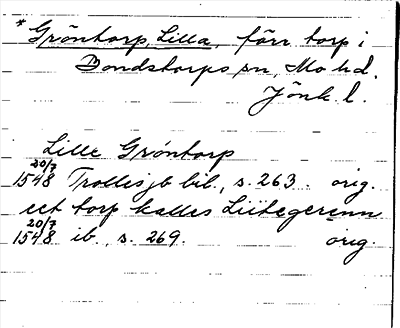 * Gröntorp, Lilla, förr torp i
Bondstorps sn, Mo hd.
Jönk. l.
Lille Gröntorp
20/7
1548 Trollesjb bil., s. 263. orig.
eet torp kalles Liitegerenn
20/7
1548 ib., s. 269. orig.